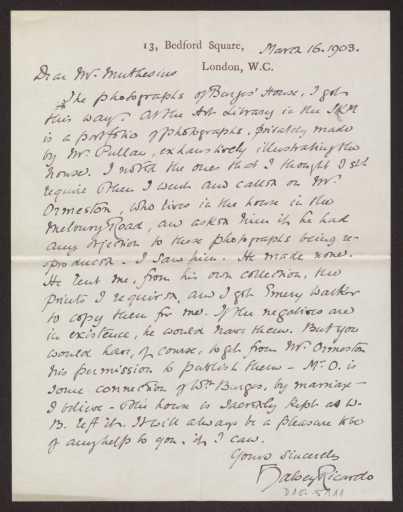 13, Bedford Square,
March 16. 1903.
London, W.C.
Dear Mr. Muthesius
The photographs of Burges' House, I got
this way. At the Art Library in the SKM
is a portfolio of photographs, privately made
by Mr. Pullan, exhaustively illustrating the
house. I noted the ones that I thought I shd
require then I went and called on Mr.
Ormeston, who lives in the house in the
Melbury Road, and asked him if he had
any objection to these photographs being re-
produced. I saw him. He made none.
He lent me, from his own collection, the
prints I required, and I got Emery Walker
to copy them for me. If the negatives are
in existence, he would have them. But you
would have, of course, to get from Mr. Ormeston
his permission to publish them – Mr. O. is
some connection of Wm Burges, by marriage –
I believe – This house is sacredly kept as W.
B. left it. It will always be a pleasure to be
of any help to you, if I can.
Yours sincerely
Halsey Ricardo